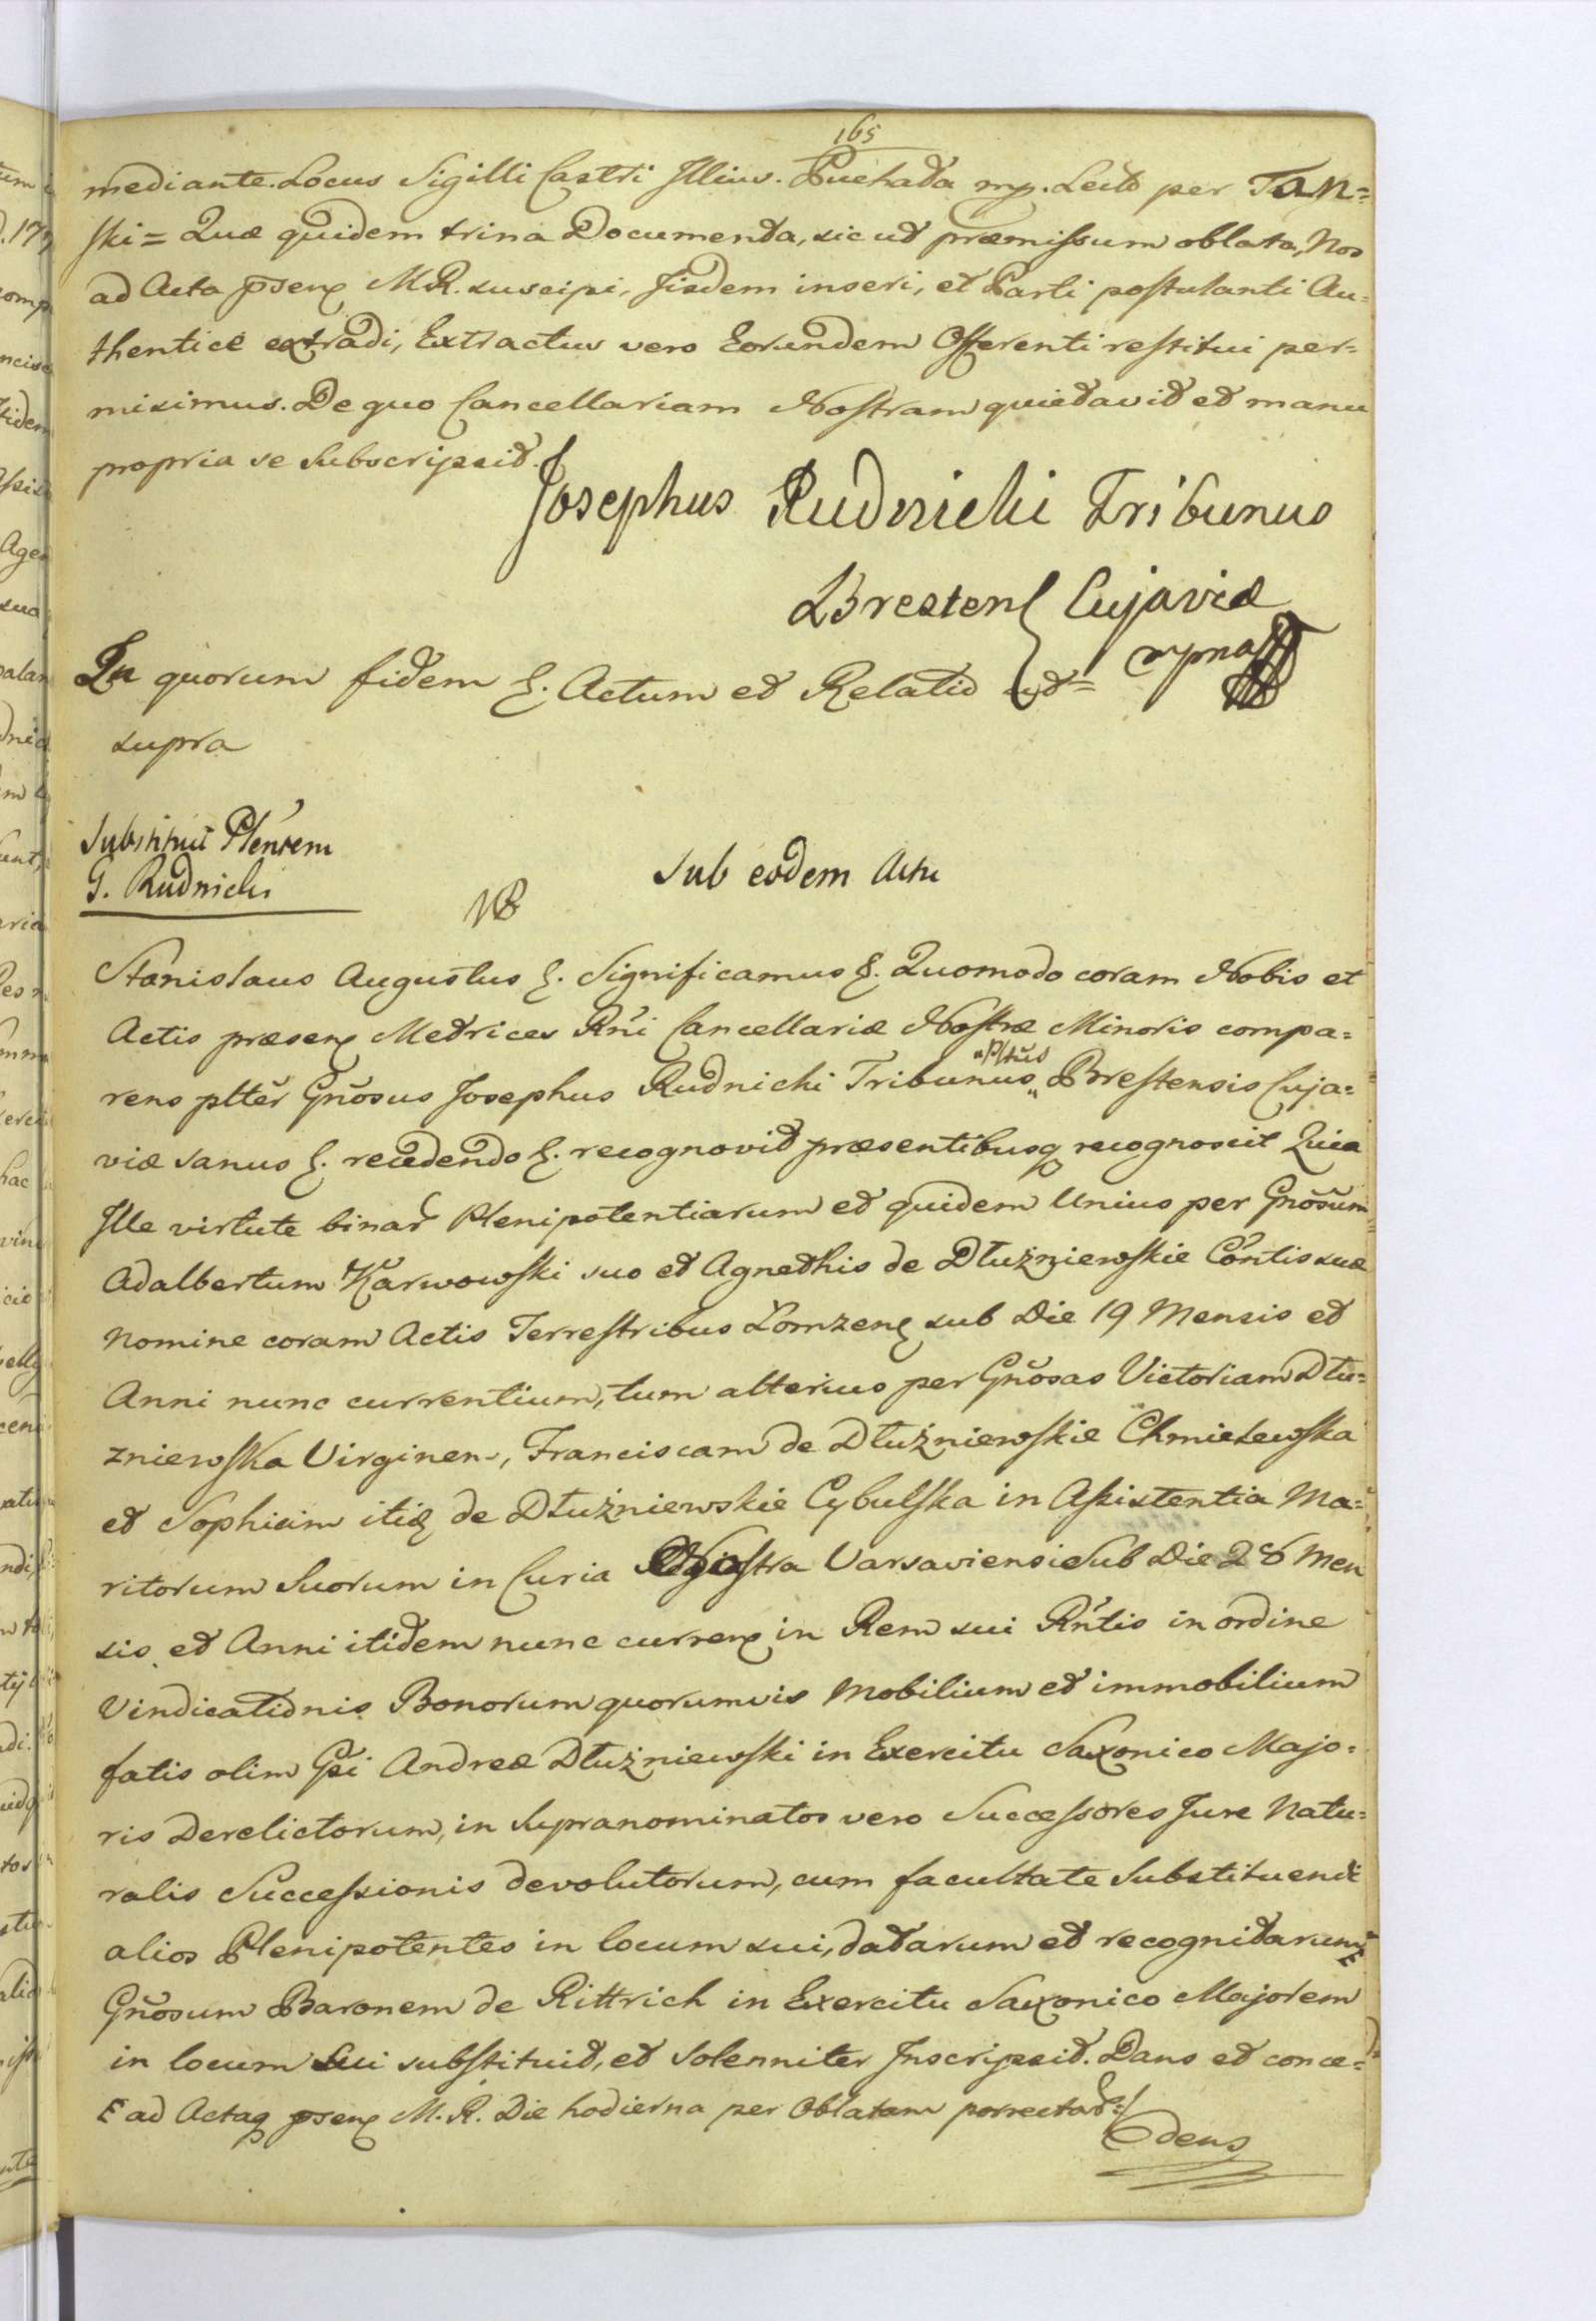 165
mediante. Locus Sigilli Castri Illius. Puchała mp. Lectŏ per Tań=
ski= Quæ quidem trina Documenta, sic ut præmissum oblata, Nos
ad Acta pσens MR. suscipi, Iisdem inseri, et Parti postulanti Au=
thenticè extradi, Extractus vero Eorundem Offerenti restitui per=
misimus. De quo Cancellariam Nostram quietavit et manu
propria se Subscripsit.
Josephus Rudnicki Tribunus
Bresten Cujaviæ
mpria
In quorum fidem &. Actum et Relatio ut
supra
Substituit Pleńtem
G. Rudnicki
NB
Sub eodem Actu
Stanislaus Augustus &. Significamus &. Quomodo coram Nobis et
Actis præsens Metrices Rńi Cancellariæ Nostræ Minoris compa=
rens plter Gnŏsus Josephus Rudnicki Tribunus Brestensis Cuja=
viæ sanus &. recedendo &. recognovit præsentibusq recognoscit Quia
Ille virtute binar Plenipotentiarum et quidem Unius per Gnŏsum
Adalbertum Karwowski suo et Agnethis de Dłużniewskie Cońtis suæ
Nomine coram Actis Terrestribus Łomzens sub Die 19 Mensis et
Anni nunc currentium, tum alterius per Gnŏsas Victoriam Dłu=
żniewska Virginem, Franciscam de Dłużniewskie Chmielewska
et Sophiam itid de Dłużniewskie Cybulska in Assistentia Ma=
ritorum Suorum in Curia Nostra Varsaviensi Sub Die 28 Men
sis et Anni itidem nunc currens in Rem sui Rńtis in ordine
Vindicationis Bonorum quorumvis Mobilium et immobilium
fatis olim Gŏi Andreæ Dłużniewski in Exercitu Saxonico Majo=
ris Derelictorum, in Supranominatos vero Successores Jure Natu=
ralis Successionis devolutorum, cum facultate Substituendi
alios Plenipotentes in locum sui, datarum et recognitarum
Gnŏsum Baronem de Rittrich in Exercitu Saxonico Majorem
in locum Sui substituit, et Solenniter Inscripsit. Dans et conce=
E ad Actaq pσens M. R. Die hodierna per Oblatam porrectar
dens